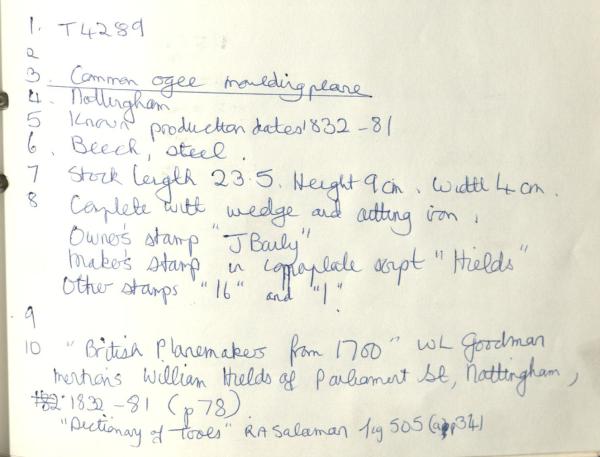 1. T4289
2
3. Common ogee moulding plane
4. Nottingham
5 Known production dates 1832-81
6. Beech, steel.
7 Stock length 23.5. Height 9cm. Width 4cm.
8 Complete with wedge and cutting iron.
Owner's stamp "J Baily"
Maker's stamp in copperplate script "Hields"
Other stamps "16" and "1".
9
10 "British Planemakers from 1700" WL Goodman
mentions William Hields of Parliament St, Nottingham,
1832-81 (p78)
"Dictionary of Tools" RA Salaman fig 505 (p341)